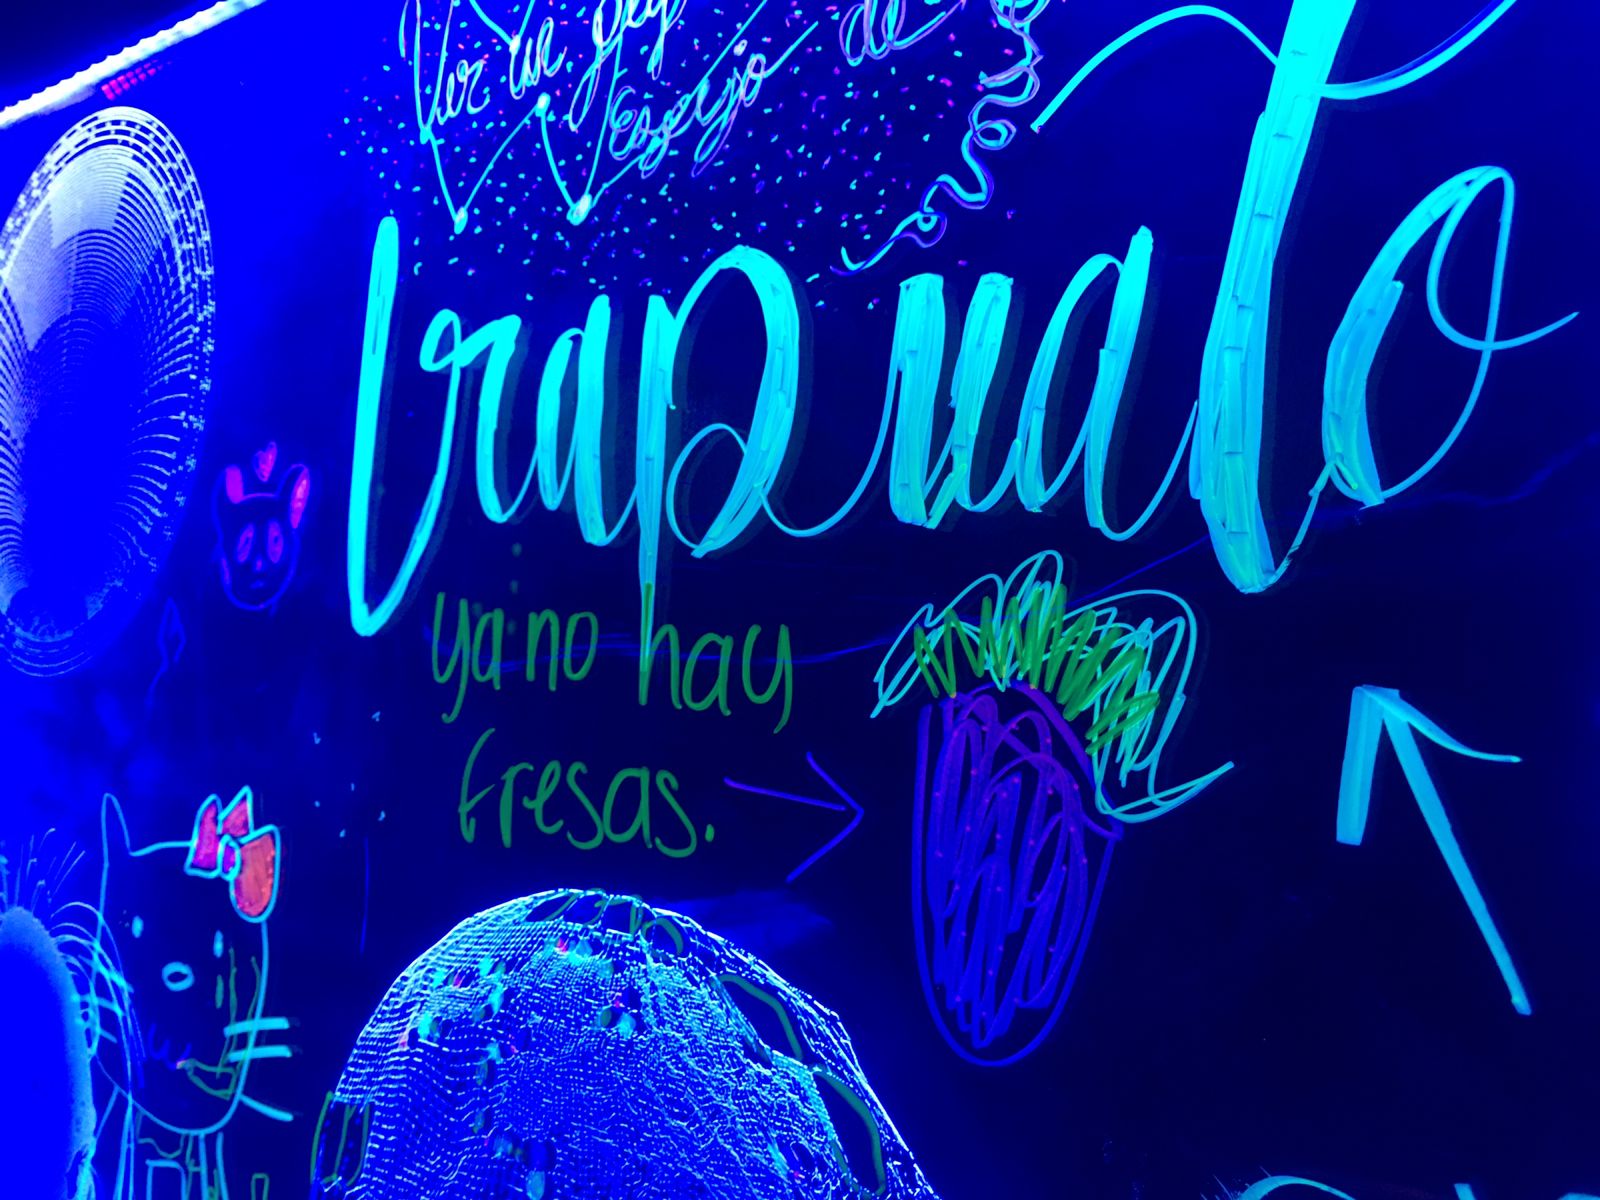 Ver un
de
Espejo
Irapuato
ya no hay
fresas.